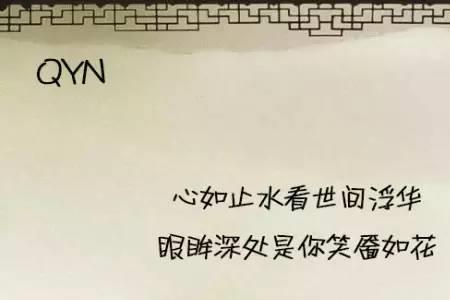 QYN
心如止水看世间浮华
眼眸深处是你笑靥如花